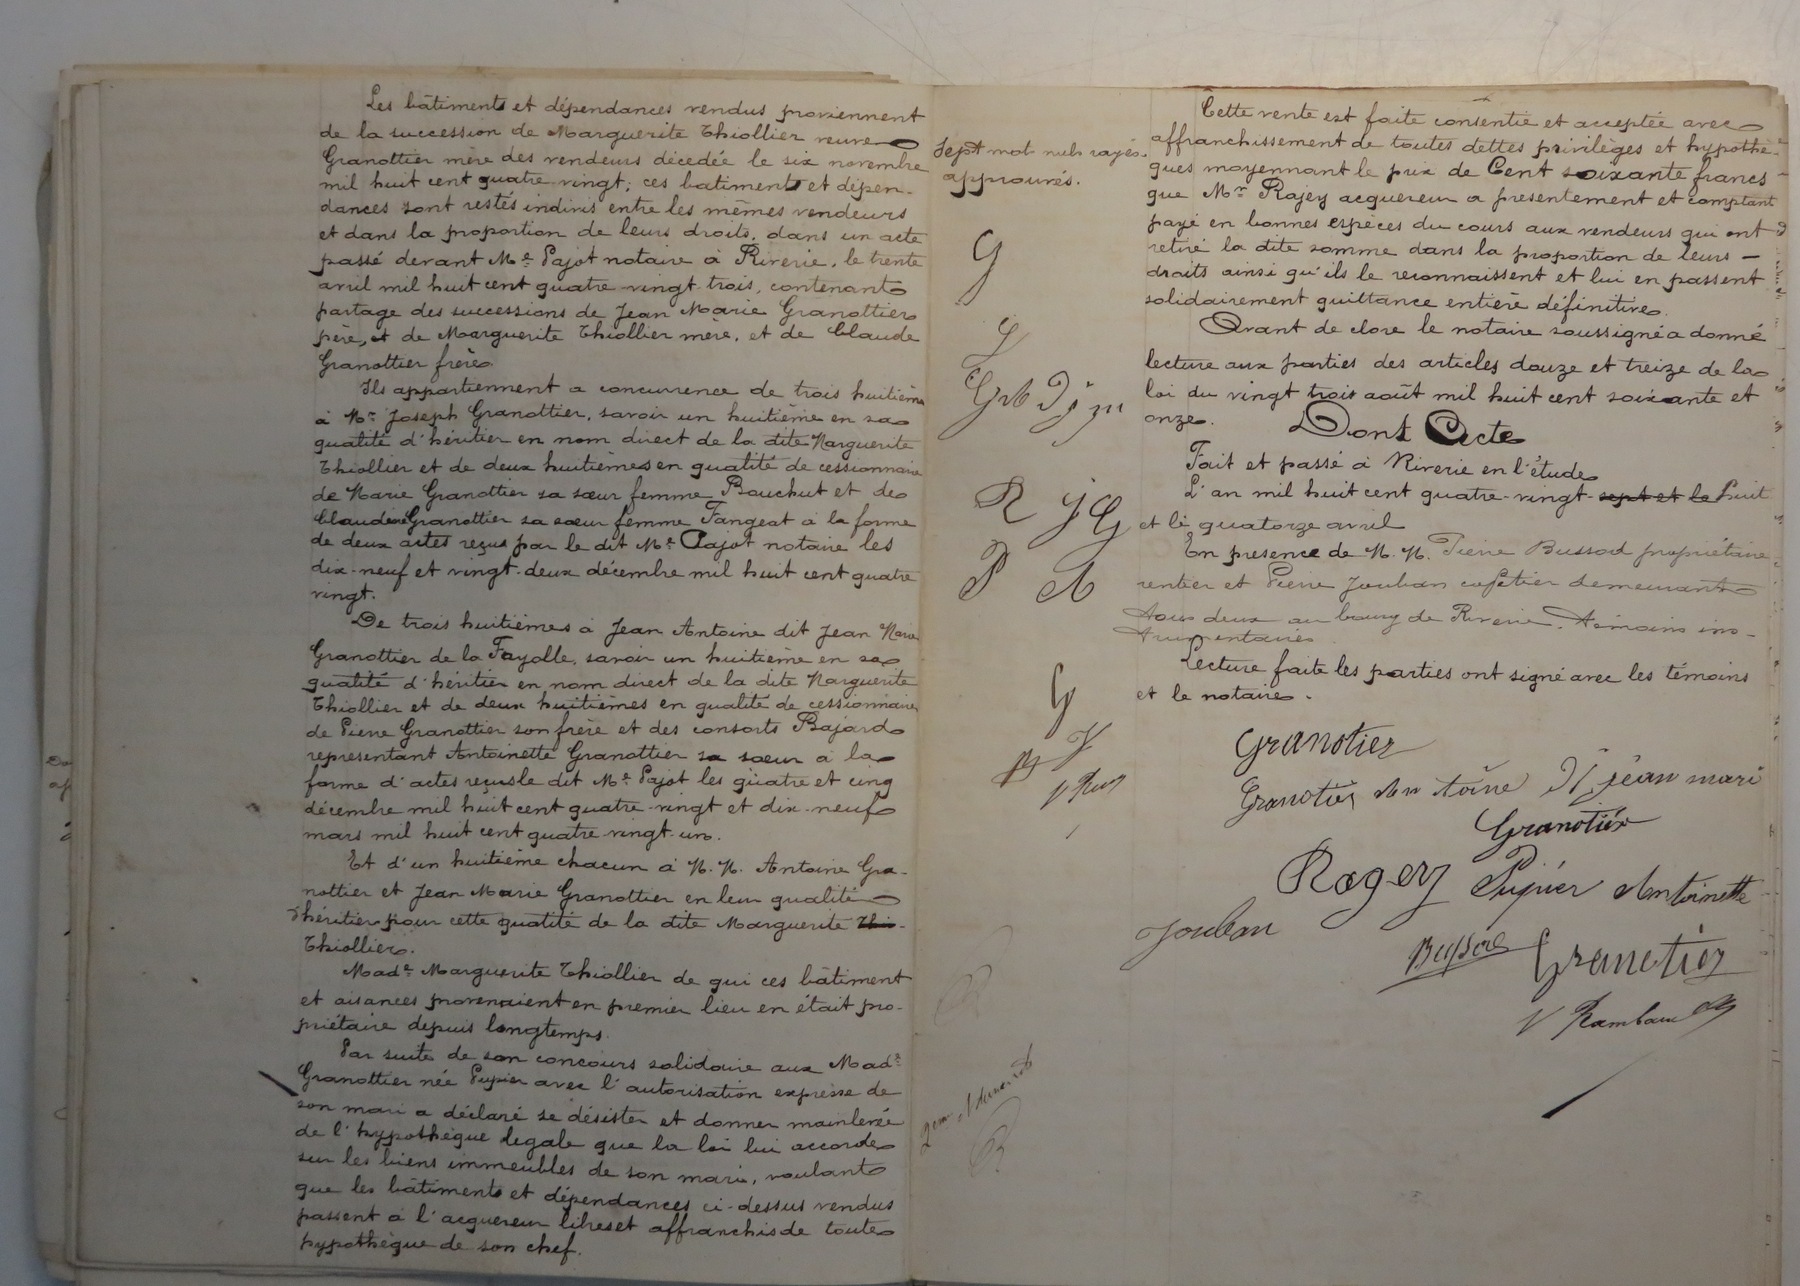 Les bâtiments et dépendances vendus proviennent
de la succession de Marguerite Thiollier veuve
Granottier mère des vendeurs décédée le six novembre
mil huit cent quatre-vingt; ces batiments et dépen-
dances sont restés indivis entre les mêmes vendeurs
et dans la proportion de leurs droits, dans un acte
passé devant Me Pajot notaire à Riverie, le trente
avril mil huit cent quatre-vingt trois, contenant
partage des successions de Jean Marie Granottier
père, et de Marguerite Thiollier mère, et de Claude
Granottier frère
Ils appartiennent a concurrence de trois huitième
à Mr Joseph Granottier, savoir un huitième en sa
qualité d'héritier en nom direct de la dite Marguerite
Thiollier et de deux huitièmes en qualité de cessionnaire
de Marie Granottier sa sœur femme Bouchut et de
Claudine Granottier sa sœur femme Fangeat à la forme
de deux actes reçus par le dit Me Pajot notaire les
dix-neuf et vingt-deux décembre mil huit cent quatre
vingt.
De trois huitièmes à Jean Antoine dit Jean Marie
Granottier de la Fayolle, savoir un huitième en sa
qualité d'héritier en nom direct de la dite Marguerite
Thiollier et de deux huitièmes en qualité de cessionnaire
de Pierre Granottier son frère et des consorts Bajard
representant Antoinette Granottier sa sœur à la
forme d'actes reçus le dit Me Pajot les quatre et cinq
décembre mil huit cent quatre-vingt et dix-neuf
mars mil huit cent quatre-vingt-un.
Et d'un huitième chacun à M. M. Antoine Gra-
nottier et Jean Marie Granottier en leur qualité
d'héritier pour cette qualité de la dite Marguerite Thi-
Thiollier.
Made Marguerite Thiollier de qui ces bâtiment
et aisances provenaient en premier lieu en était pro-
priétaire depuis longtemps.
Par suite de son concours solidaire aux Made
Granottier née Pupier avec l'autorisation expresse de
son mari a déclaré se désister et donner mainlevée
de l'hypothèque legale que la loi lui accorde
sur les biens immeubles de son mari, voulant
que les bâtiments et dépendances ci-dessus vendus
passent à l'acquereur libres et affranchis de toute
hypothèque de son chef.
Sept mot nuls rayés
approuvés.
G
J G
R
P A
G
Cette vente est faite consentie et acceptée avec
affranchissement de toutes dettes privilèges et hypothè-
ques moyennant le prix de Cent soixante francs
que Mr Rajey acquereur a presentement et comptant
payé en bonnes espèces du cours aux vendeurs qui ont
retiré la dite somme dans la proportion de leurs
droits ainsi qu'ils le reconnaissent et lui en passent
solidairement quittance entière définitive.
Avant de clore le notaire soussigné a donné
lecture aux parties des articles douze et treize de la
loi du vingt trois août mil huit cent soixante et
onze.
Dont Acte
Fait et passé à Riverie en l'étude
L'an mil huit cent quatre-vingt-sept et le huit
et le quatorze avril
En presence de M. M. Pierre Bussod propriétaire
rentier et Pierre Jouban cafetier demeurant
tous deux au bourg de Riverie. témoins ins-
trumentaires
Lecture faite les parties ont signé avec les témoins
et le notaire.
Granotier
Granotier Antoine Dt jean mari
Granotier
Rogery Pupier Antoinette
Jouban
Bussod Granotier
V Rambaud